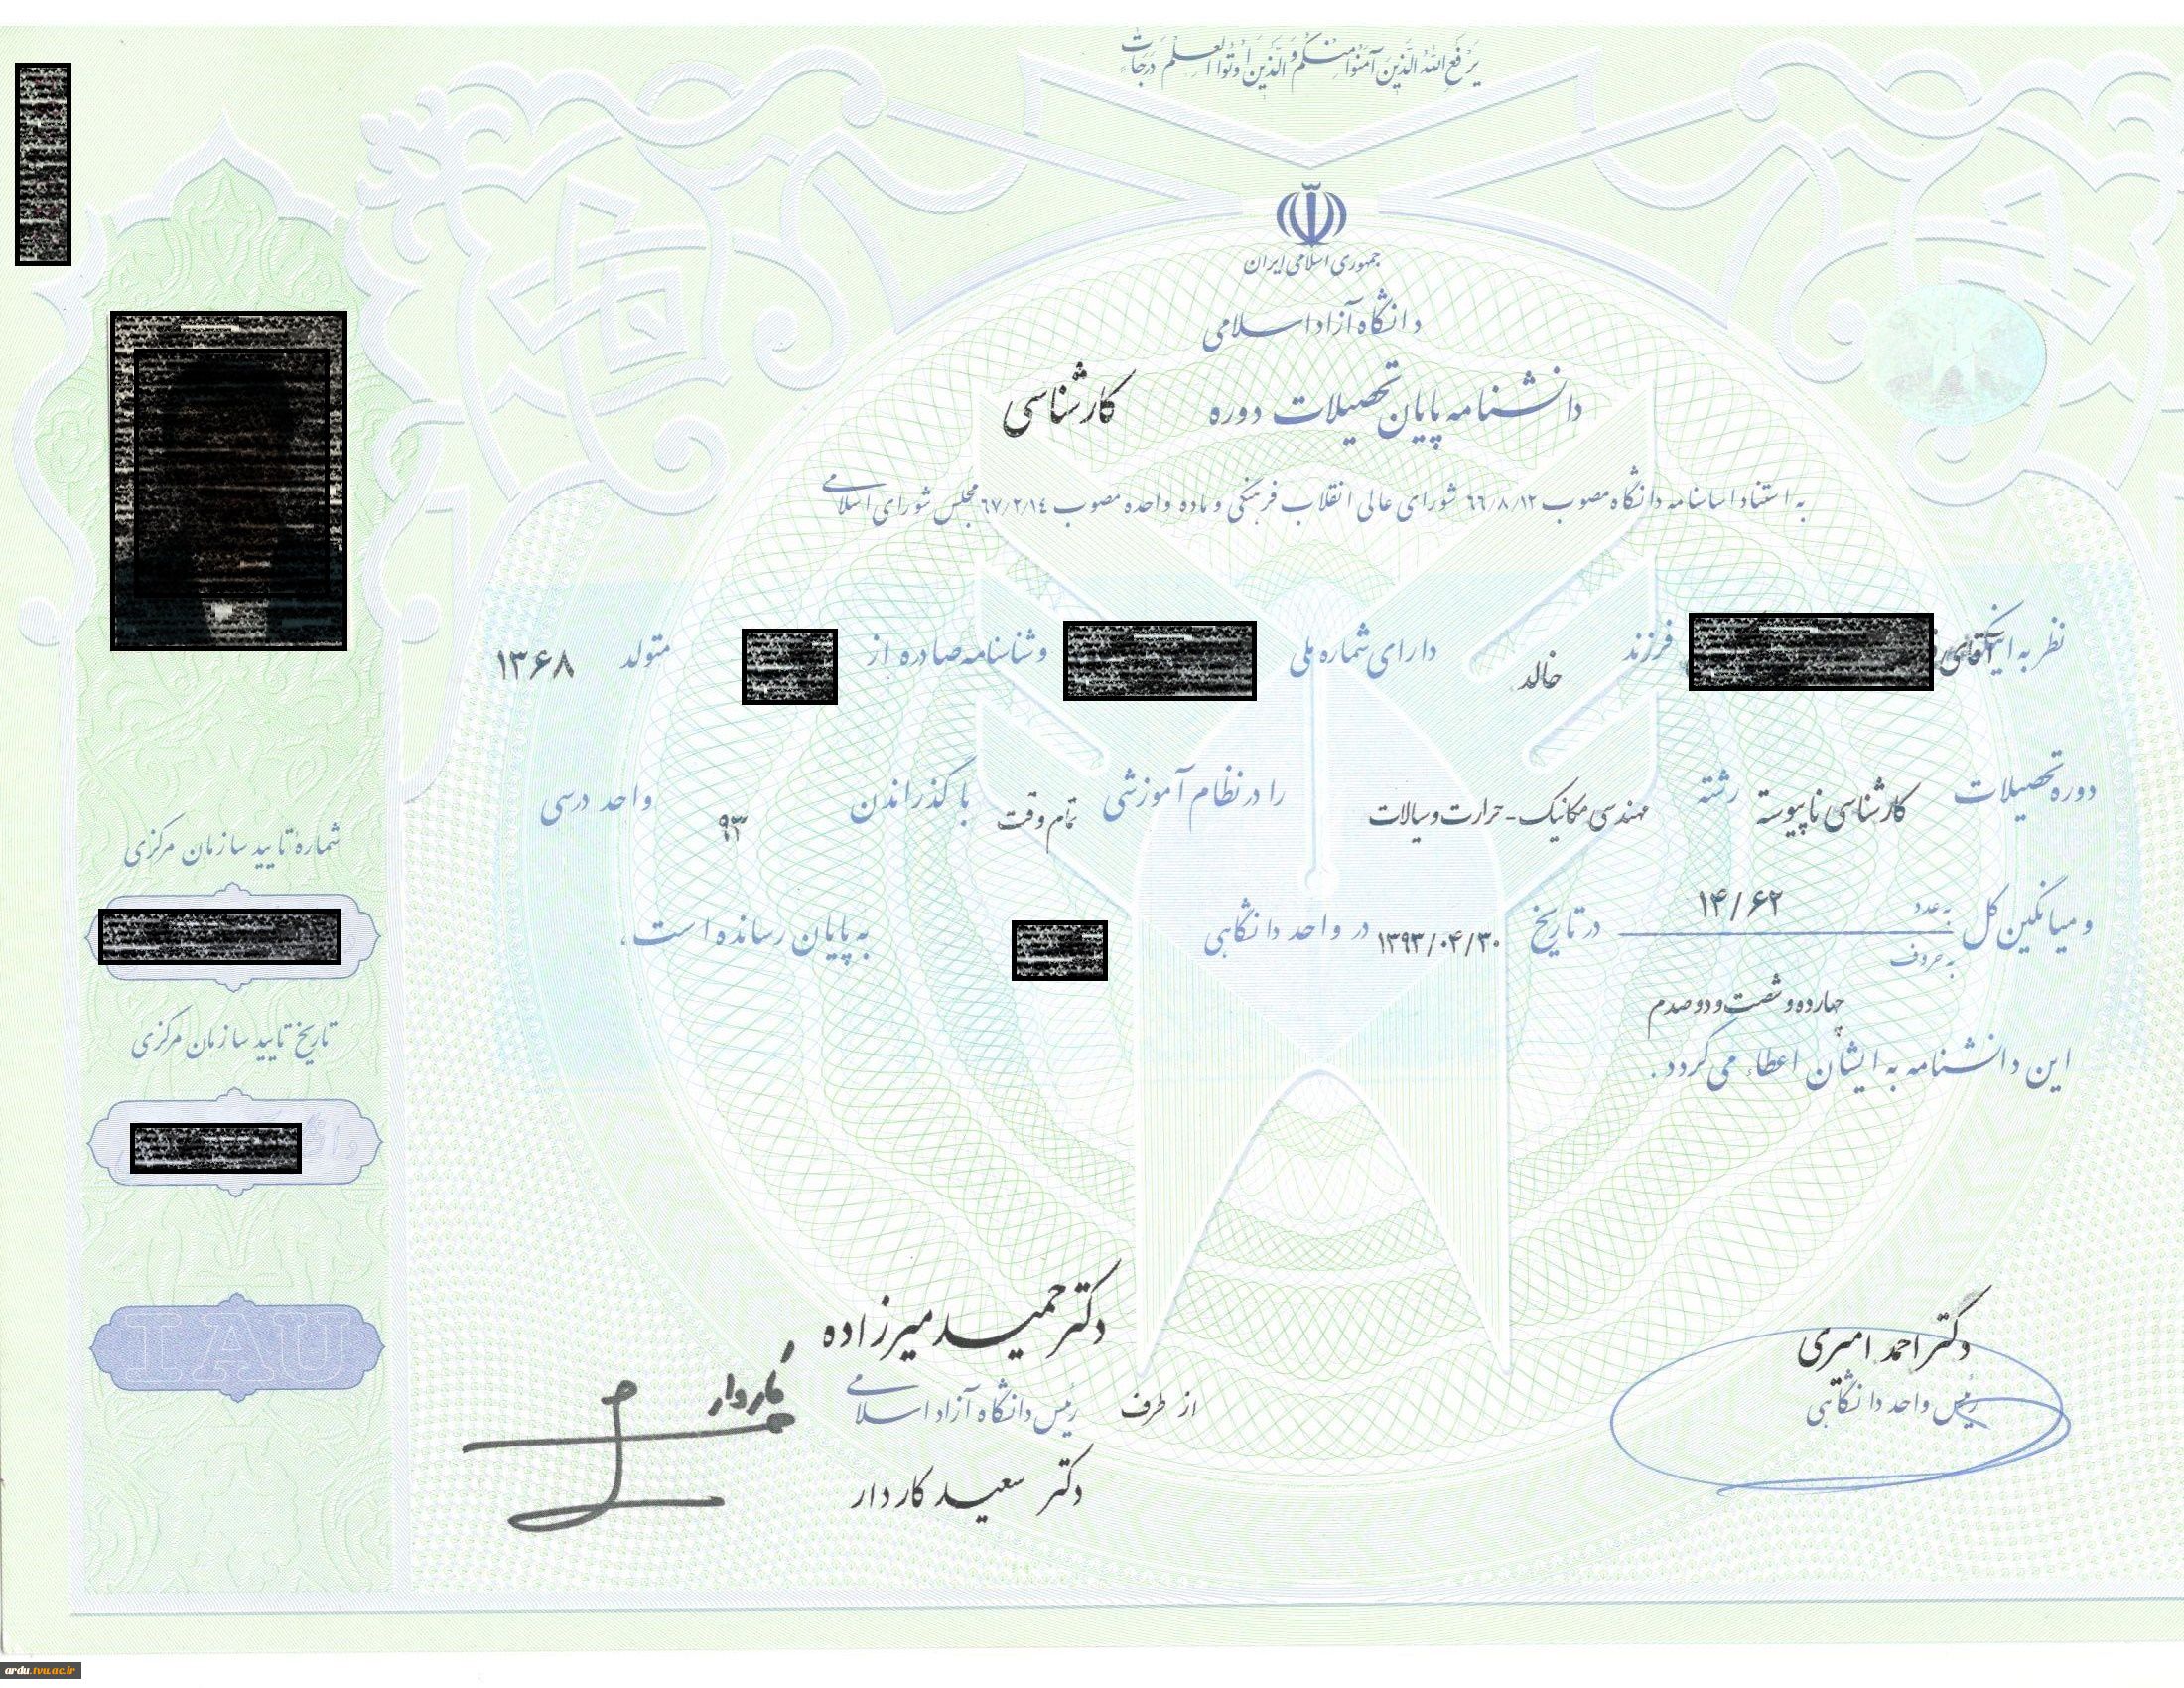 یَرْفَعِ اللهُ الَّذینَ آمَنُوا مِنْکُمْ وَ الَّذینَ اُوتُوا الْعِلْمَ دَرَجاتٍ
جمهوری اسلامی ایران
دانشگاه آزاد اسلامی
دانشنامه پایان تحصیلات دوره کارشناسی
به استناد اساسنامه دانشگاه مصوب ٦٦/٨/١٢ شورای عالی انقلاب فرهنگی و ماده واحده مصوب ٦٧/٢/١٤ مجلس شورای اسلامی
نظر به اینکه آقای فرزند خالد دارای شماره ملی و شناسنامه صادره از متولد ۱۳۶۸
دوره تحصیلات کارشناسی ناپیوسته رشته مهندسی مکانیک - حرارت و سیالات را در نظام آموزشی تمام وقت با گذراندن ۹۳ واحد درسی
و میانگین کل به عدد ۱۴/۶۲ در تاریخ ۱۳۹۳/۰۴/۳۰ در واحد دانشگاهی به پایان رسانده است.
به حروف
چهارده و شصت و دو صدم
این دانشنامه به ایشان اعطاء می گردد.
شماره تایید سازمان مرکزی
تاریخ تایید سازمان مرکزی
IAU
دکتر احمد امیری
رئیس واحد دانشگاهی
دکتر حمید میرزاده
از طرف رئیس دانشگاه آزاد اسلامی
دکتر سعید کاردار
کاردار
ardu.tvu.ac.ir